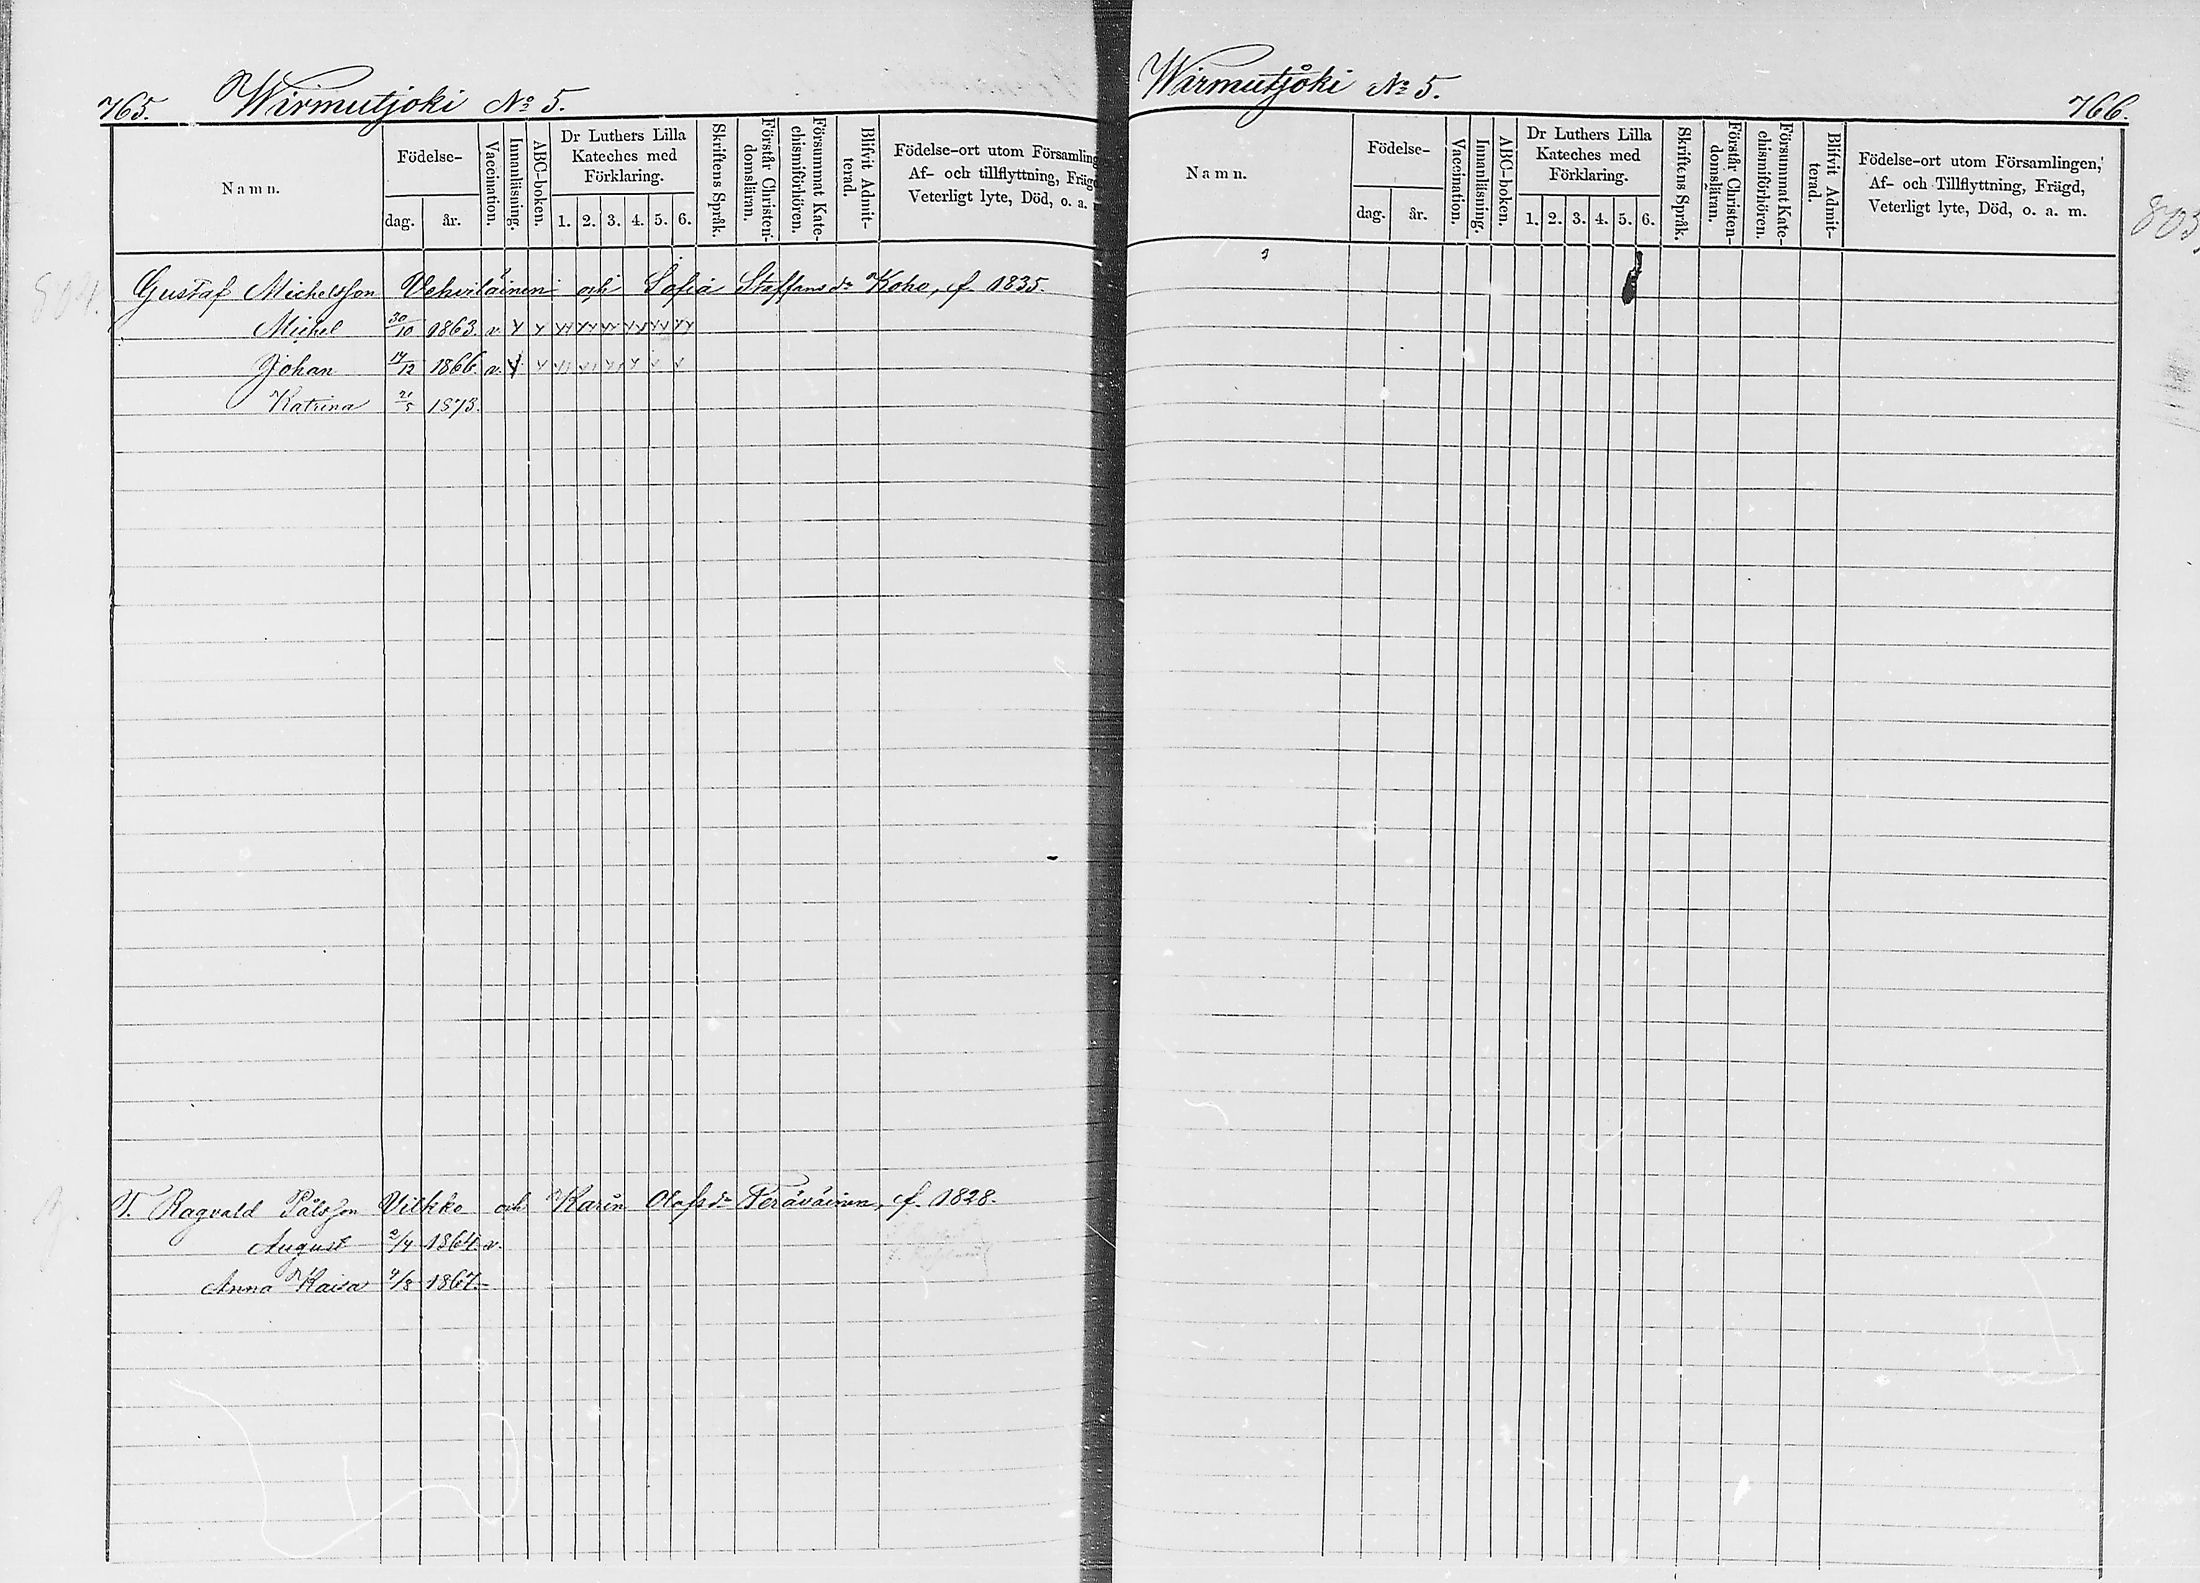 765. Wirmutjoki No 5.
Namn. Födelse- dag. år. Vaccination. Innanläsning. ABC-boken. Dr Luthers Lilla Kateches med Förklaring. 1. 2. 3. 4. 5. 6. Skriftens Språk. Förstår Christendomsläran. Försummat Katechismiförhören. Blifvit Admitterad. Födelse-ort utom Församling Af- och tillflyttning, Fräg Veterligt lyte, Död, o. a.
Gustaf Michelsson Vehviläinen och Sofia Staffans dr Koho, f. 1835.
Michel 30/10 1863. v.
Johan 14/12 1866. v.
Katrina 21/5 1873.
T. Ragvald Pålsson Vilkko och Karin Olofs dr Teräväinen, f. 1828.
August 2/4 1864 v.
Anna Kaisa 4/8 1867.
Wirmutjoki No 5. 766.
Namn. Födelse- dag. år. Vaccination. Innanläsning. ABC-boken. Dr Luthers Lilla Kateches med Förklaring. 1. 2. 3. 4. 5. 6. Skriftens Språk. Förstår Christendomsläran. Försummat Katechismiförhören. Blifvit Admitterad. Födelse-ort utom Församlingen, Af- och Tillflyttning, Frägd, Veterligt lyte, Död, o. a. m.